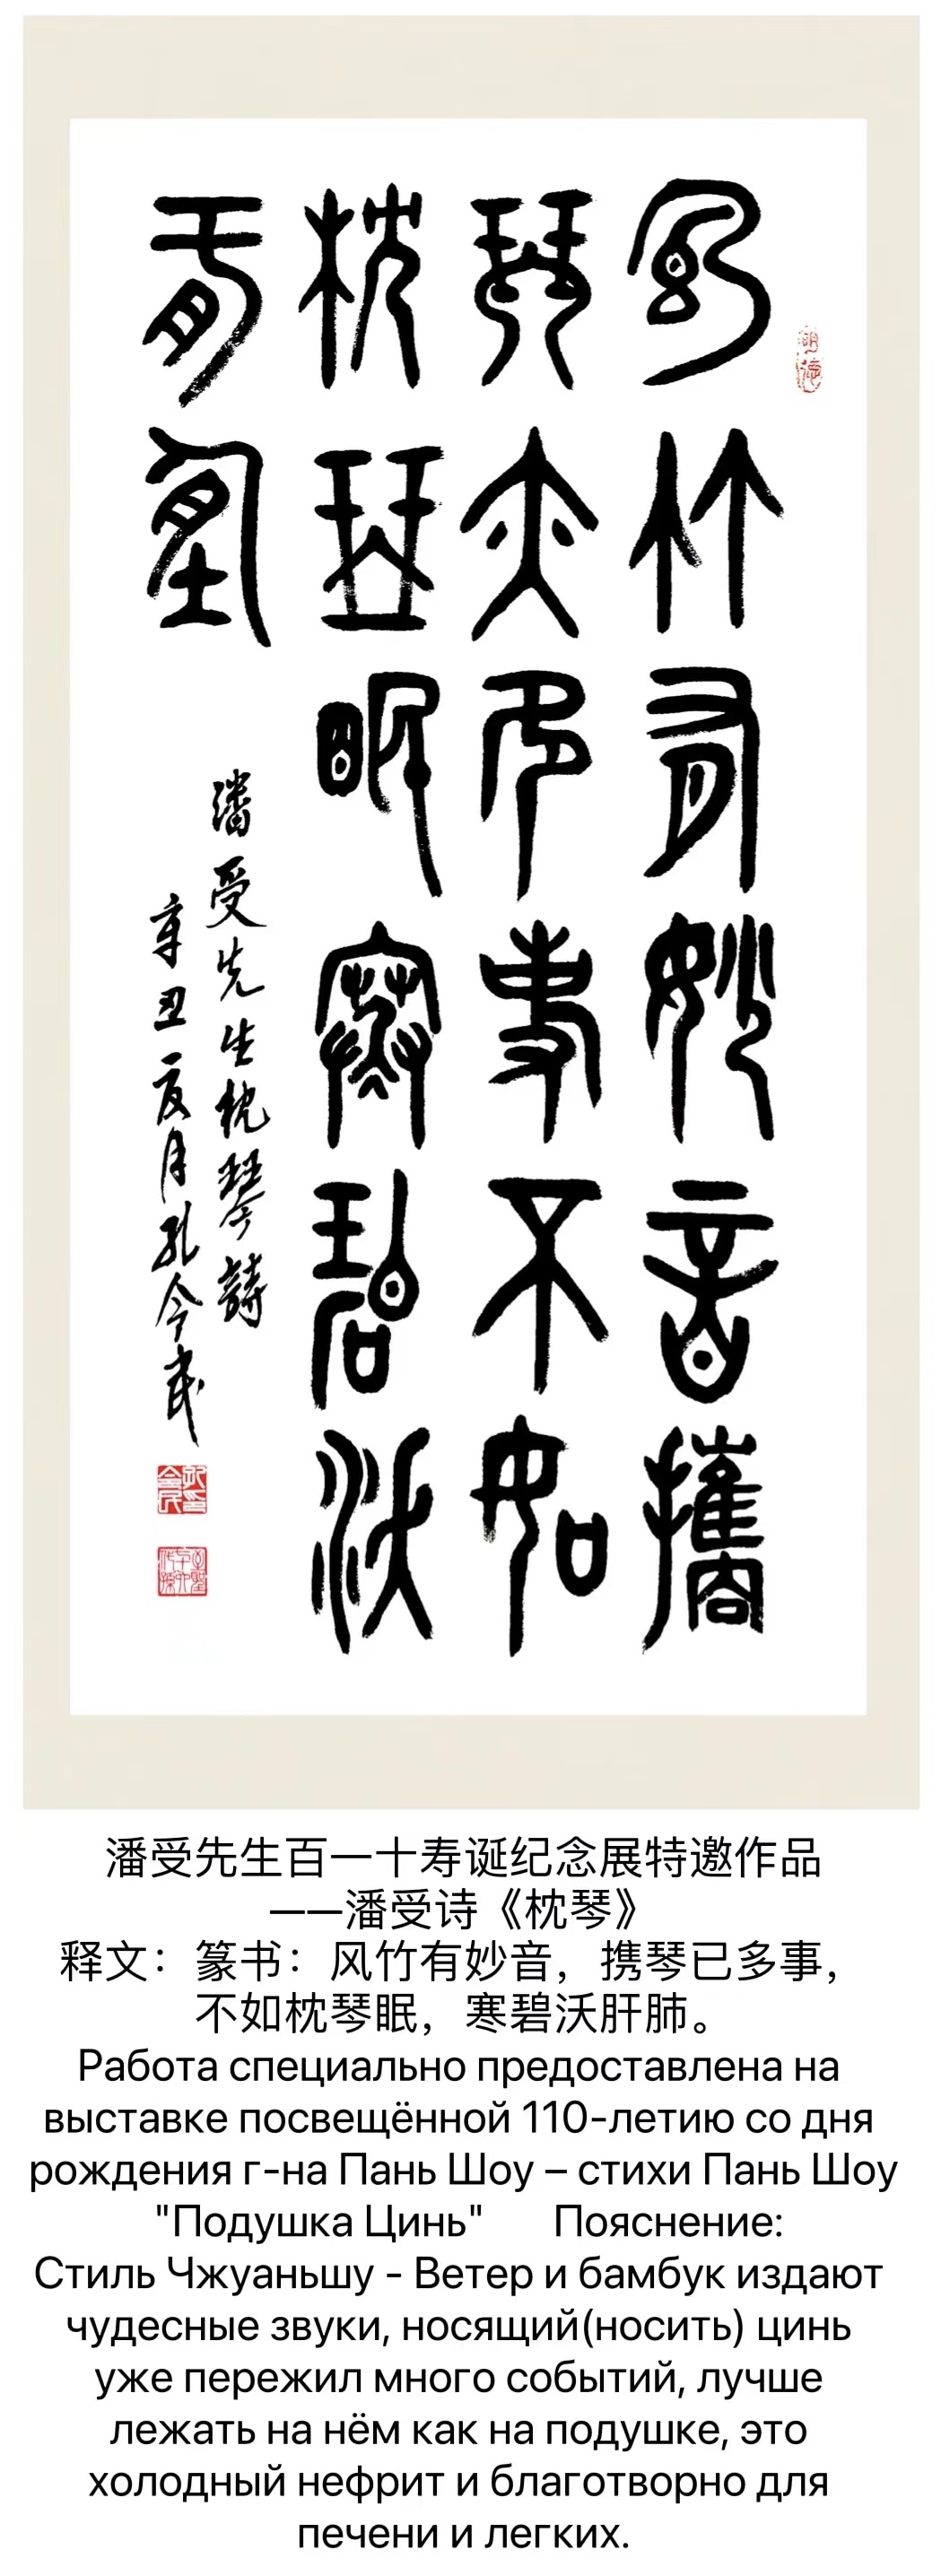 風竹有妙音攜
琴事不如
枕琴眠寒碧沃
肝肺
潘受先生枕琴詩
辛丑夏月孔令民
潘受先生百一十寿诞纪念展特邀作品
——潘受诗《枕琴》
释文：篆书：风竹有妙音，携琴已多事，
不如枕琴眠，寒碧沃肝肺。
Работа специально предоставлена на
выставке посвещённой 110-летию со дня
рождения г-на Пань Шоу – стихи Пань Шоу
"Подушка Цинь" Пояснение:
Стиль Чжуаньшу - Ветер и бамбук издают
чудесные звуки, носящий(носить) цинь
уже пережил много событий, лучше
лежать на нём как на подушке, это
холодный нефрит и благотворно для
печени и легких.